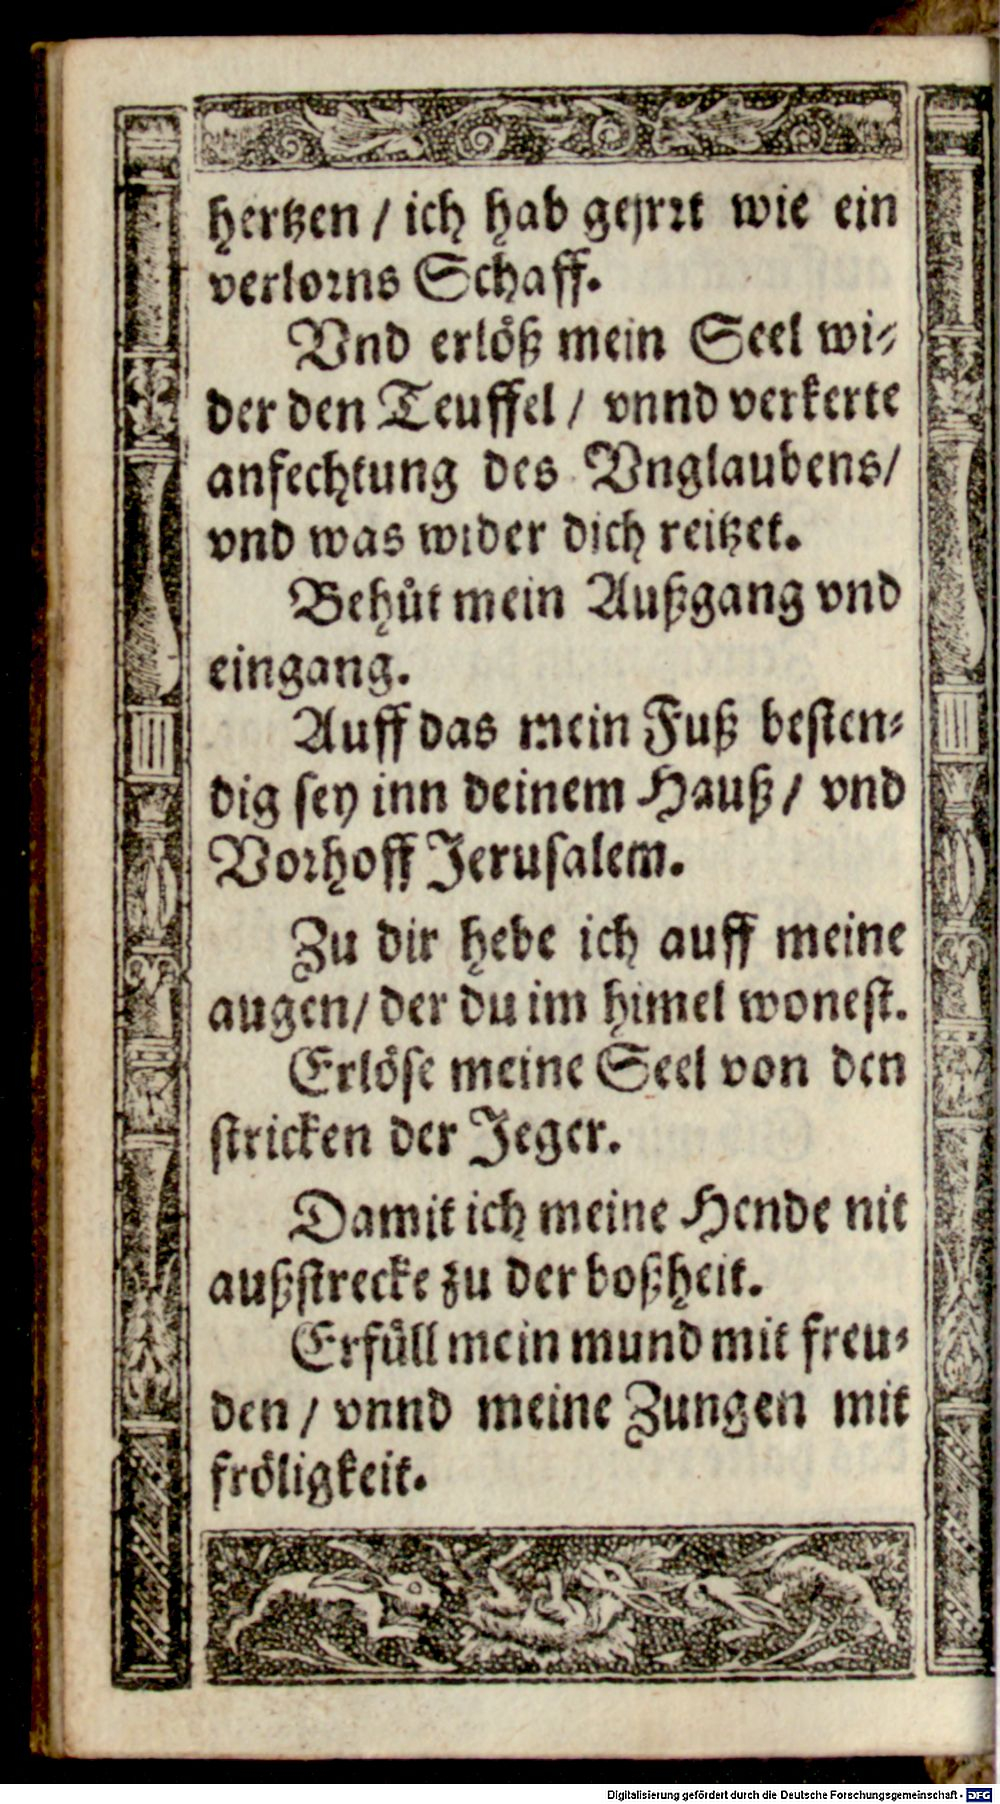 hertzen / ich hab gejrrt wie ein
verlorns Schaff.
Vnd erlöß mein Seel wi⸗
der den Teuffel / vnnd verkerte
anfechtung des Vnglaubens/
vnd was wider dich reitzet.
Behuͤt mein Außgang vnd
eingang.
Auff das mein Fuß besten⸗
dig sey inn deinem Hauß / vnd
Vorhoff Jerusalem.
Zu dir hebe ich auff meine
augen/ der du im himel wonest.
Erlöse meine Seel von den
stricken der Jeger.
Damit ich meine Hende nit
außstrecke zu der boßheit.
Erfüll mein mund mit freu⸗
den / vnnd meine Zungen mit
fröligkeit.
Digitalisierung gefördert durch die Deutsche Forschungsgemeinschaft - DFG